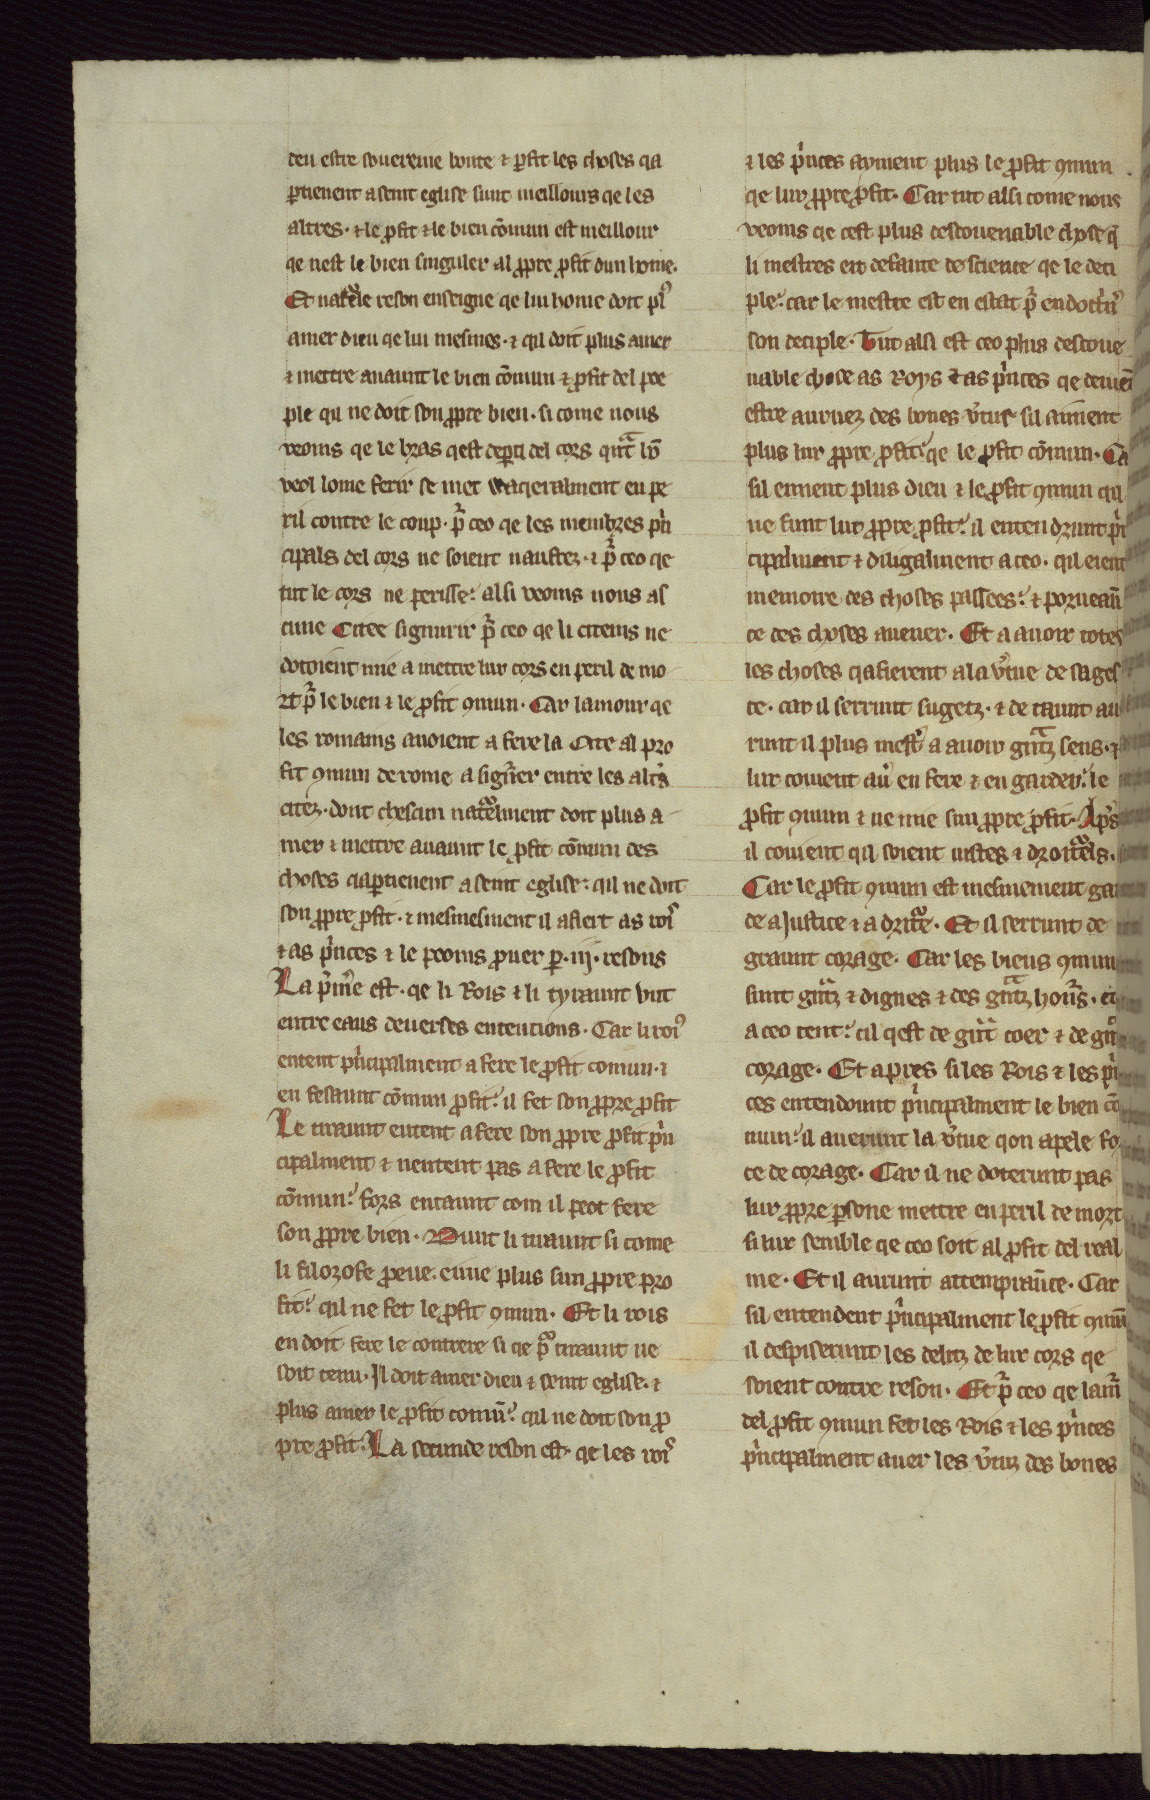 deu estre souereine bonte ⁊ ꝑfit les choses qa
ꝑtienent a seint eglise sunt meillours qe les
altres. ⁊ le ꝓfit ⁊ le bien cōmun est meillour
qe nest le bien singuler al ꝓpre ꝓfit dun home.
Et natͣele reson enseigne qe lui home doit plꝰ
amer dieu qe lui mesmes. ⁊ qil doit plus amer
⁊ mettre auaunt le bien cōmun ⁊ ꝓfit del poe
ple qil ne doit son ꝓpre bien. si come nous
veoms qe le bras qest deꝑti del cors qͣnt lū
veol lome ferir se met uraqeralment en pe
ril contre le coup. pͬ ceo qe les membres pͥn
cipals del cors ne soient naufrez. ⁊ pͬ ceo qe
tut le cors ne perisse: alsi veoms nous al
cune Citee signurir pͬ ceo qe li citeins ne
dotoient mie a mettre lur cors en peril de mo
rt pͬ le bien ⁊ le ꝓfit ꝯmun. Car lamour qe
les romains auoient a fere la Cite al pro
fit ꝯmun de rome a signͬer entre les altͥs
citez. dont chescun natͣelment doit plus a
mer ⁊ mettre auaunt le ꝓfit cōmun des
choses qaꝑtienent a seint eglise: qil ne doit
son ꝓpre ꝓfit. ⁊ mesmesment il afiert as roiˢ
⁊ as pͥnces ⁊ le peoms ꝓuer ꝑ .iij. resons
La pͥmͤe est. qe li Rois ⁊ li tyraunt unt
entre eaus deuerses entencions. Car li roiˢ
entent pͥncipalment a fere le ꝓfit comun. ⁊
en fesaunt cōmun ꝓfit: il fet son ꝓpre ꝓfit
Le tiraunt entent a fere son ꝓpre ꝓfit pͥn
cipalment ⁊ nentent pas a fere le ꝓfit
cōmun: fors entaunt com il peot fere
son ꝓpre bien. Dunt li tiraunt si come
li filozofe ꝓeue. eime plus sun ꝓpre pro
fit: qil ne fet le ꝓfit ꝯmun. Et li rois
en doit fere le contrere si qe pͬ tiraunt ne
soit tenu. Il doit amer dieu ⁊ seint eglise. ⁊
plus amer le ꝓfit comū: qil ne doit son ꝓ
pre ꝓfit. La secunde reson est. qe les roiˢ
⁊ les pͥnces ayment plus le ꝓfit ꝯmun
qe lur ꝓpre ꝓfit. Car tut alsi come nous
veoms qe cest plus descouenable chose q̄
li mestres eit defaute de science qe le deci
ple: car le mestre est en estat pͬ endoctͥnͬ
son deciple. Tut alsi est ceo plus descoue
nable chose as Roys ⁊ as pͥnces qe deiuēt
estre aurnez des bones v̾tus sil aiment
plus lur ꝓpre ꝓfit: qe le ꝓfit cōmun. Ca
sil eiment plus dieu ⁊ le ꝓfit ꝯmun qil
ne funt lur ꝓpre ꝓfit: il entendrunt pͥn
cipalment ⁊ diligalment a ceo. qil eient
memoire des choses passees: ⁊ porueaū
ce des choses auener. Et a auoir totes
les choses qafierent a la v̾tue de sages
ce. car il serrunt sugetz. ⁊ de taunt au
runt il plus mestͬ a auoir gͣntz sens. ⁊
lur couient auͥ en fere ⁊ en garder: le
ꝓfit ꝯmun ⁊ ne mie sun ꝓpre ꝓfit. Apͥs
il couient qil soient iustes ⁊ droitͤels.
Car le ꝓfit ꝯmun est mesmement gar
de a Justice ⁊ a dritͬe. Et il serrunt de
graunt corage. Car les biens ꝯmun
sunt gͣntz ⁊ dignes ⁊ des gͣntz honͬs. et
a ceo tent: cil qest de gͣnt coer ⁊ de gͣn
corage. Et apres si les Rois ⁊ les pͥn
ces entendoiunt pͥncipalment le bien cō
mun: il auerunt la v̾tue qon apele for
ce de corage. Car il ne doterunt pas
lur ꝓpre ꝑsone mettre en peril de mort
si lur semble qe ceo soit al ꝓfit del real
me. Et il aurunt attempraūce. Car
sil entendent pͥncipalment le ꝓfit ꝯmun
il despiserunt les delitz de lur cors qe
soient contre reson. Et pͬ ceo qe lamͬ
del ꝓfit ꝯmun fet les Rois ⁊ les pͥnces
pͥncipalment auer les v̾tuz des bones